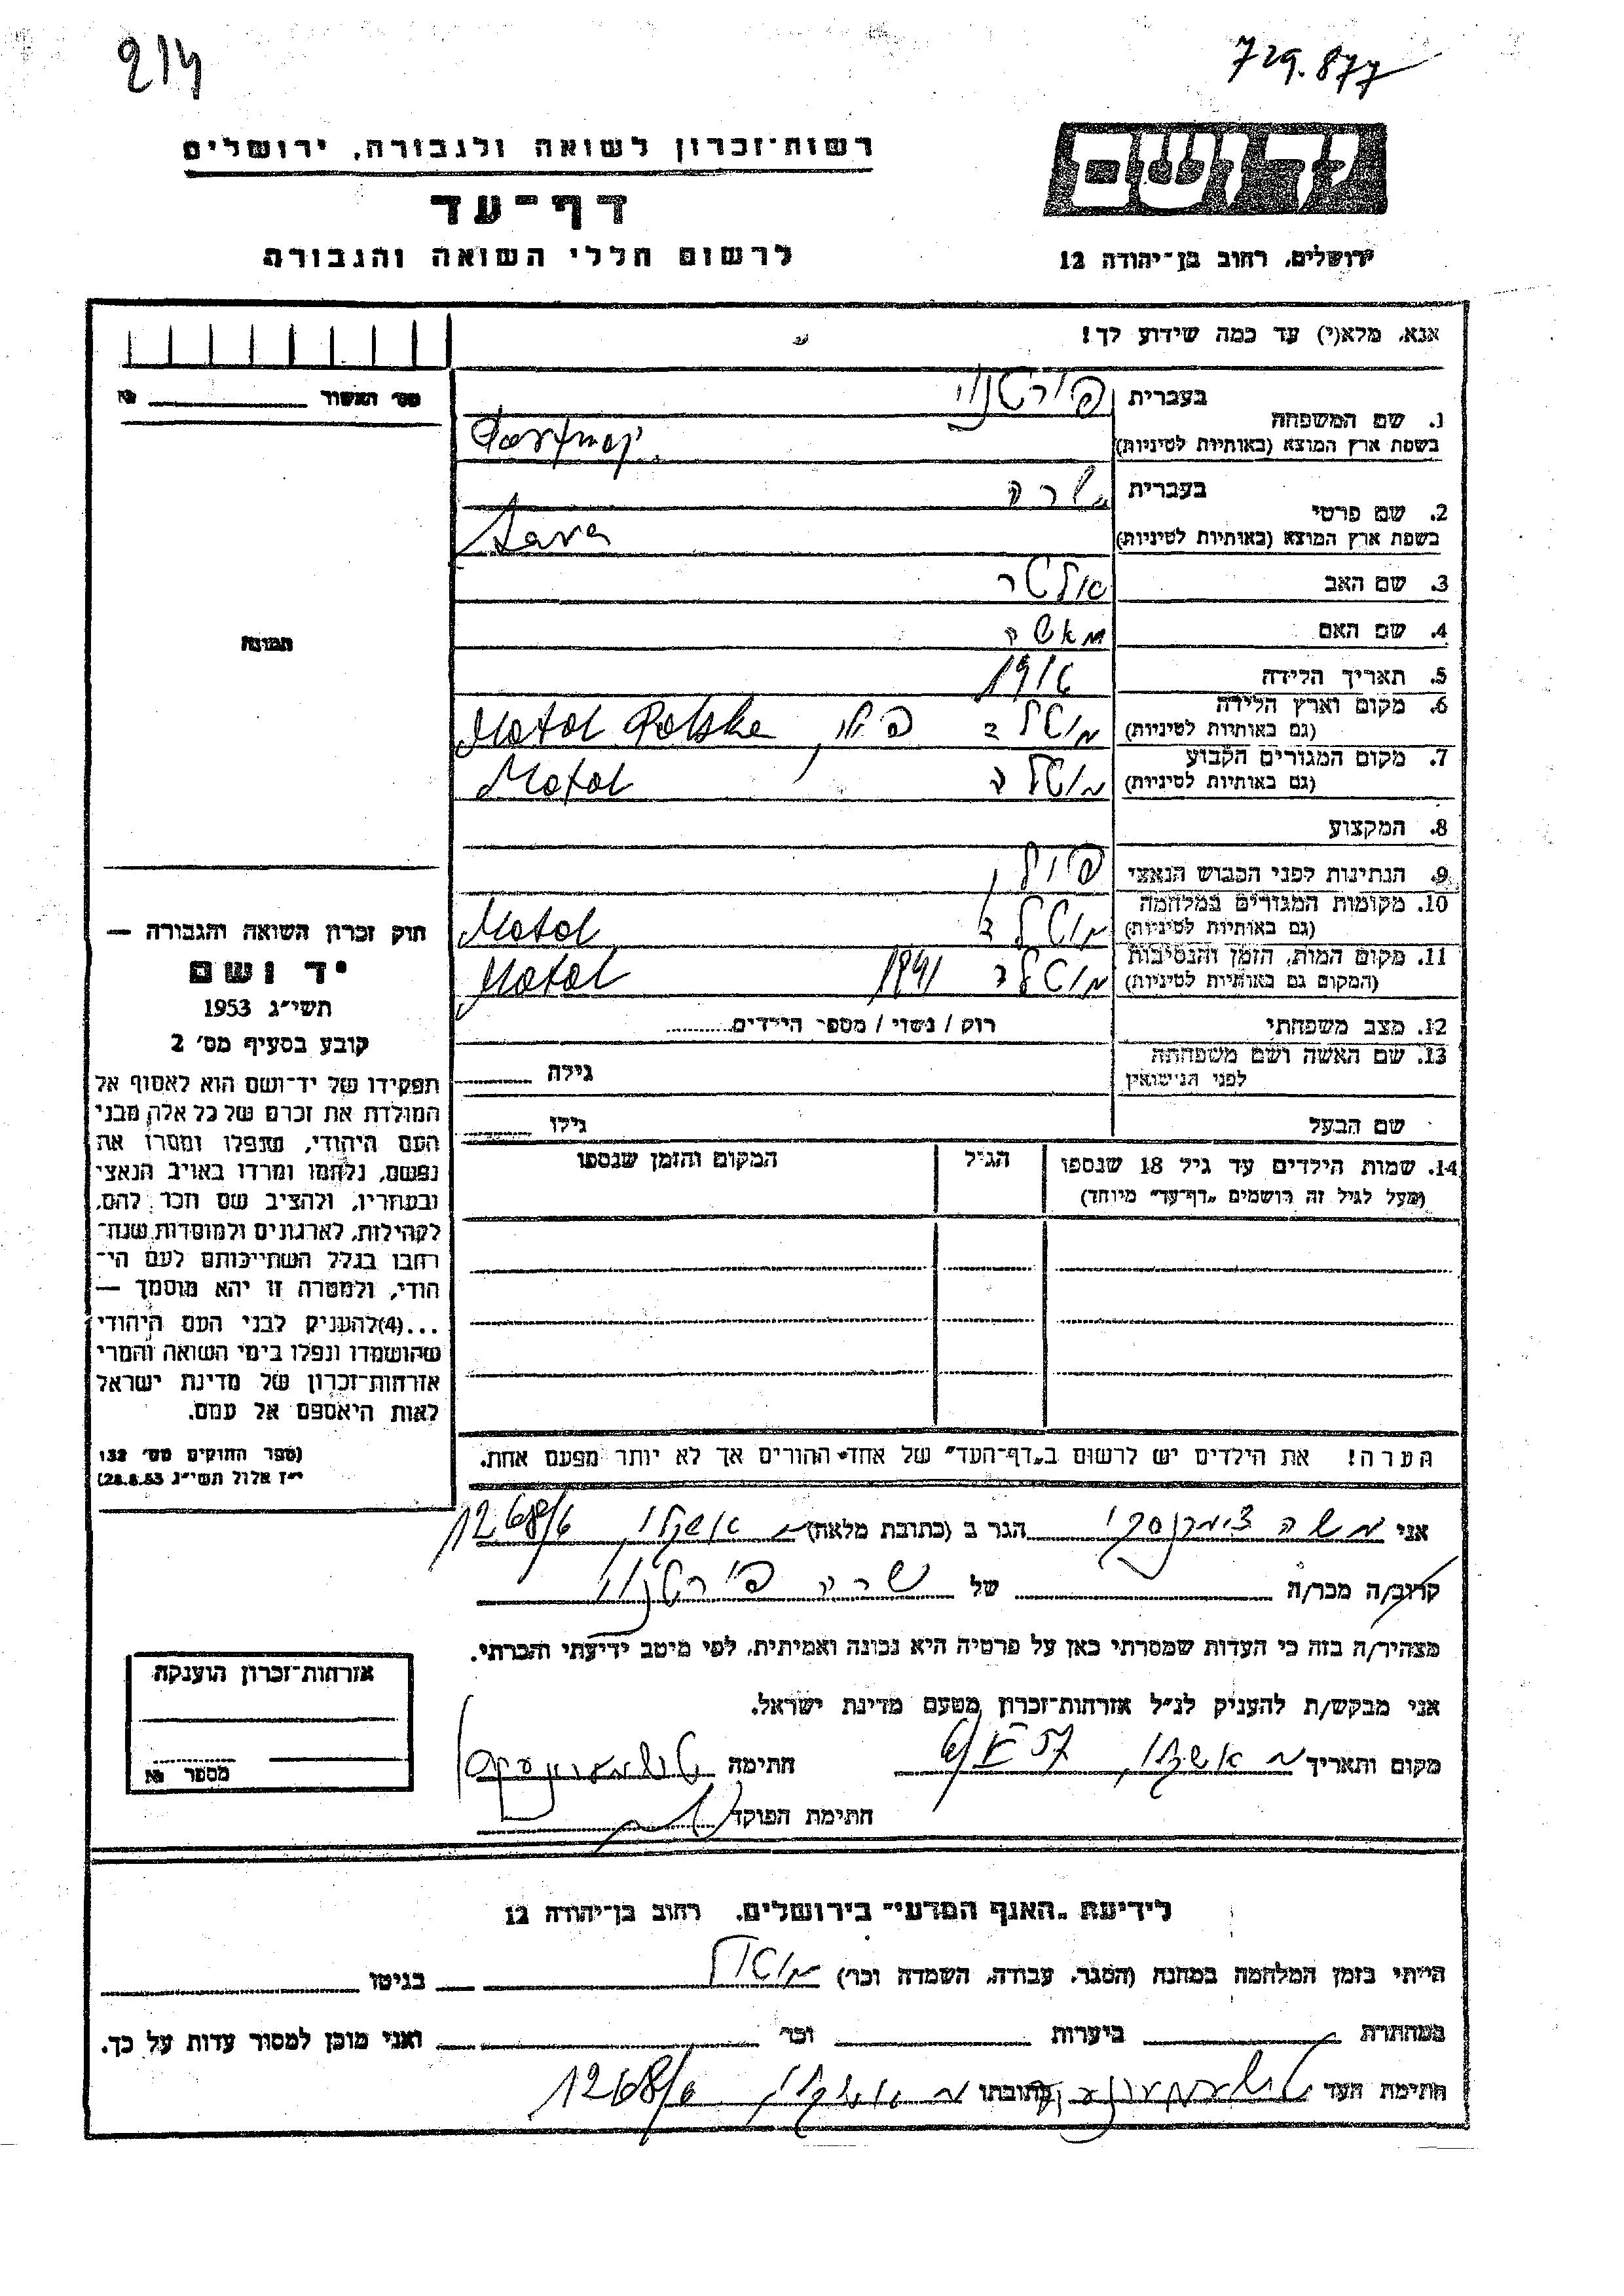 214
729.877
רשות־זכרון לשואה ולגבורה, ירושלים
דף־עד
לרשום חללי השואה והגבורה
יד ושם
ירושלים, רחוב בן־יהודה 12
אנא, מלא(י) עד כמה שידוע לך!
מס׳ האשור
1. שם המשפחה
בעברית פורטנוי
בשפת ארץ המוצא (באותיות לטיניות) Portnoj
2. שם פרטי
בעברית שרה
בשפת ארץ המוצא (באותיות לטיניות) Sara
3. שם האב אלטר
4. שם האם מאשה
5. תאריך הלידה 1916
6. מקום וארץ הלידה
(גם באותיות לטיניות) מוטלה פולין Motol Polska
7. מקום המגורים הקבוע
(גם באותיות לטיניות) מוטלה Motol
8. המקצוע
9. הנתינות לפני הכבוש הנאצי פולין
10. מקומות המגורים במלחמה
(גם באותיות לטיניות) מוטלה Motol
11. מקום המות, הזמן והנסיבות
(המקום גם באותיות לטיניות) מוטלה 1941 Motol
12. מצב משפחתי רוק / נשוי / מספר הילדים
13. שם האשה ושם משפחתה
לפני הנישואין גילה
שם הבעל גילו
14. שמות הילדים עד גיל 18 שנספו
(מעל לגיל זה רושמים „דף־עד״ מיוחד)
הגיל
המקום והזמן שנספו
הערה! את הילדים יש לרשום ב„דף־העד״ של אחד ההורים אך לא יותר מפעם אחת.
תמונה
חוק זכרון השואה והגבורה —
יד ושם
תשי״ג 1953
קובע בסעיף מס׳ 2
תפקידו של יד־ושם הוא לאסוף אל
המולדת את זכרם של כל אלה מבני
העם היהודי, שנפלו ומסרו את
נפשם, נלחמו ומרדו באויב הנאצי
ובעוזריו, ולהציב שם וזכר להם,
לקהילות, לארגונים ולמוסדות שנח־
רבו בגלל השתייכותם לעם הי־
הודי, ולמטרה זו יהא מוסמך —
...(4)להעניק לבני העם היהודי
שהושמדו ונפלו בימי השואה והמרי
אזרחות־זכרון של מדינת ישראל
לאות היאספם אל עמם.
(ספר החוקים מס׳ 132
י״ז אלול תשי״ג 28.8.53)
אני משה הגר ב (כתובת מלאה) אשקלון 1268/6
קרוב/ה מכר/ה של שרה פורטנוי
מצהיר/ה בזה כי העדות שמסרתי כאן על פרטיה היא נכונה ואמיתית, לפי מיטב ידיעתי והכרתי.
אני מבקש/ת להעניק לנ״ל אזרחות־זכרון מטעם מדינת ישראל.
מקום ותאריך אשקלון חתימה
חתימת הפוקד
אזרחות־זכרון הוענקה
מספר
לידיעת „האגף המדעי״ בירושלים, רחוב בן־יהודה 12
הייתי בזמן המלחמה במחנה (הסגר, עבודה, השמדה וכו׳) מוטול בגיטו
במחתרת ביערות וכו׳ ואני מוכן למסור עדות על כך.
חתימת העד כתובתו אשקלון 1268/6